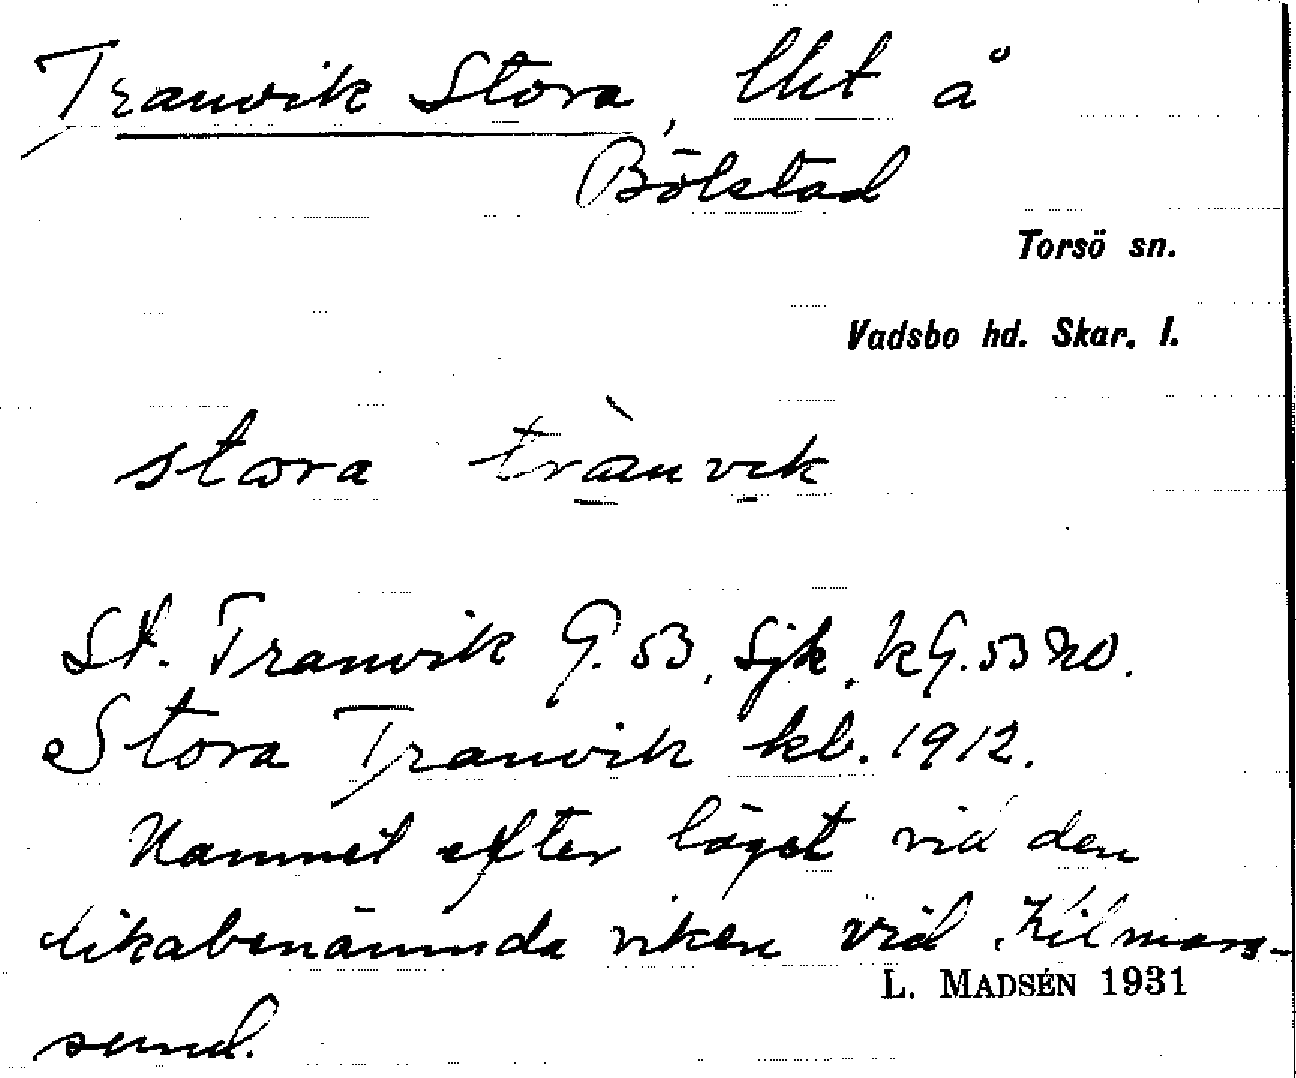 Tranvik Stora, lht å
Bölstad
Torsö sn.
Vadsbo hd. Skar. l.
stora trànvik
St. Tranvik G. 53, Sjk, kG. 53 NO.
Stora Tranvik kb. 1912.
Namnet efter läget vid den
likabenämnda viken vid Kilmars-
L. MADSÉN 1931
sund.